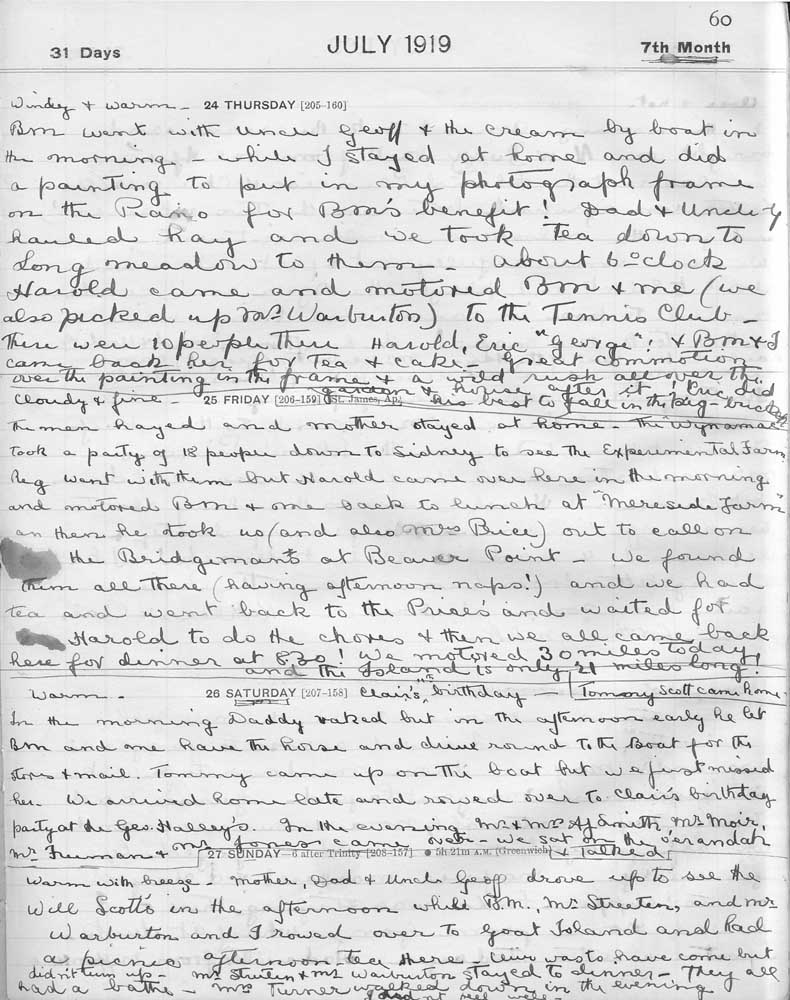 60
31 Days JULY 1919 7th Month
Windy & warm - 24 THURSDAY [205-160]
Bm went with Uncle Geoff & the cream by boat in
the morning - while I stayed at home and did
a painting to put in my photograph frame
on the Piano for Bm's benefit! Dad & Uncle G
hauled hay and we took tea down to
Long meadow to them - About 6 o'clock
Harold came and motored Bm & me (we
also picked up Mr Warburton) to the Tennis Club -
There were 10 people there Harold, Eric "George"! & Bm & I
came back here for tea & cake - Great commotion
over the painting in the frame & a wild rush all over the
garden & house after it! Eric did
his best to fall in the
Cloudy & fine - 25 FRIDAY [206-159] [St. James, Ap.]
The men hayed and mother stayed at home - The
took a party of 18 people down to Sidney to see the Experimental Farm
Reg went with them but Harold came over here in the morning
and motored Bm & me back to lunch at "Mereside Farm"
an then he took us (and also Mrs Price) out to call on
the Bridgeman's at Beaver Point - We found
them all there (having afternoon naps!) and we had
tea and went back to the Price's and waited for
Harold to do the chores & then we all came back
here for dinner at 8.30! We motored 30 miles today,
and the Island is only 21 miles long!
Warm - 26 SATURDAY [207-158] Clair's birthday - Tommy Scott came home -
In the morning Daddy raked but in the afternoon early he let
Bm and me have the horse and drive round to the Boat for the
stores & mail. Tommy came up on the boat but we just missed
her. We arrived home late and rowed over to Clair's birthday
party at the Geo. Halley's. In the evening Mr & Mrs AJ Smith, Mr Moir,
Mr Freeman & Mr Jones came over - We sat on the verandah
& talked
27 SUNDAY - 6 after Trinity [208-157] ● 5h 21m A.M. (Greenwich)
Warm with breeze - Mother, Dad & Uncle Geoff drove up to see the
Will Scott's in the afternoon while B.M., Mr Streeten, and Mr
Warburton and I rowed over to Goat Island and had
a picnic afternoon tea there - was to have come but
didn't turn up - Mr Streeten & Mr Warburton stayed to dinner - They all
had a bathe - Mrs Turner walked down in the evening
I didn't feel well -